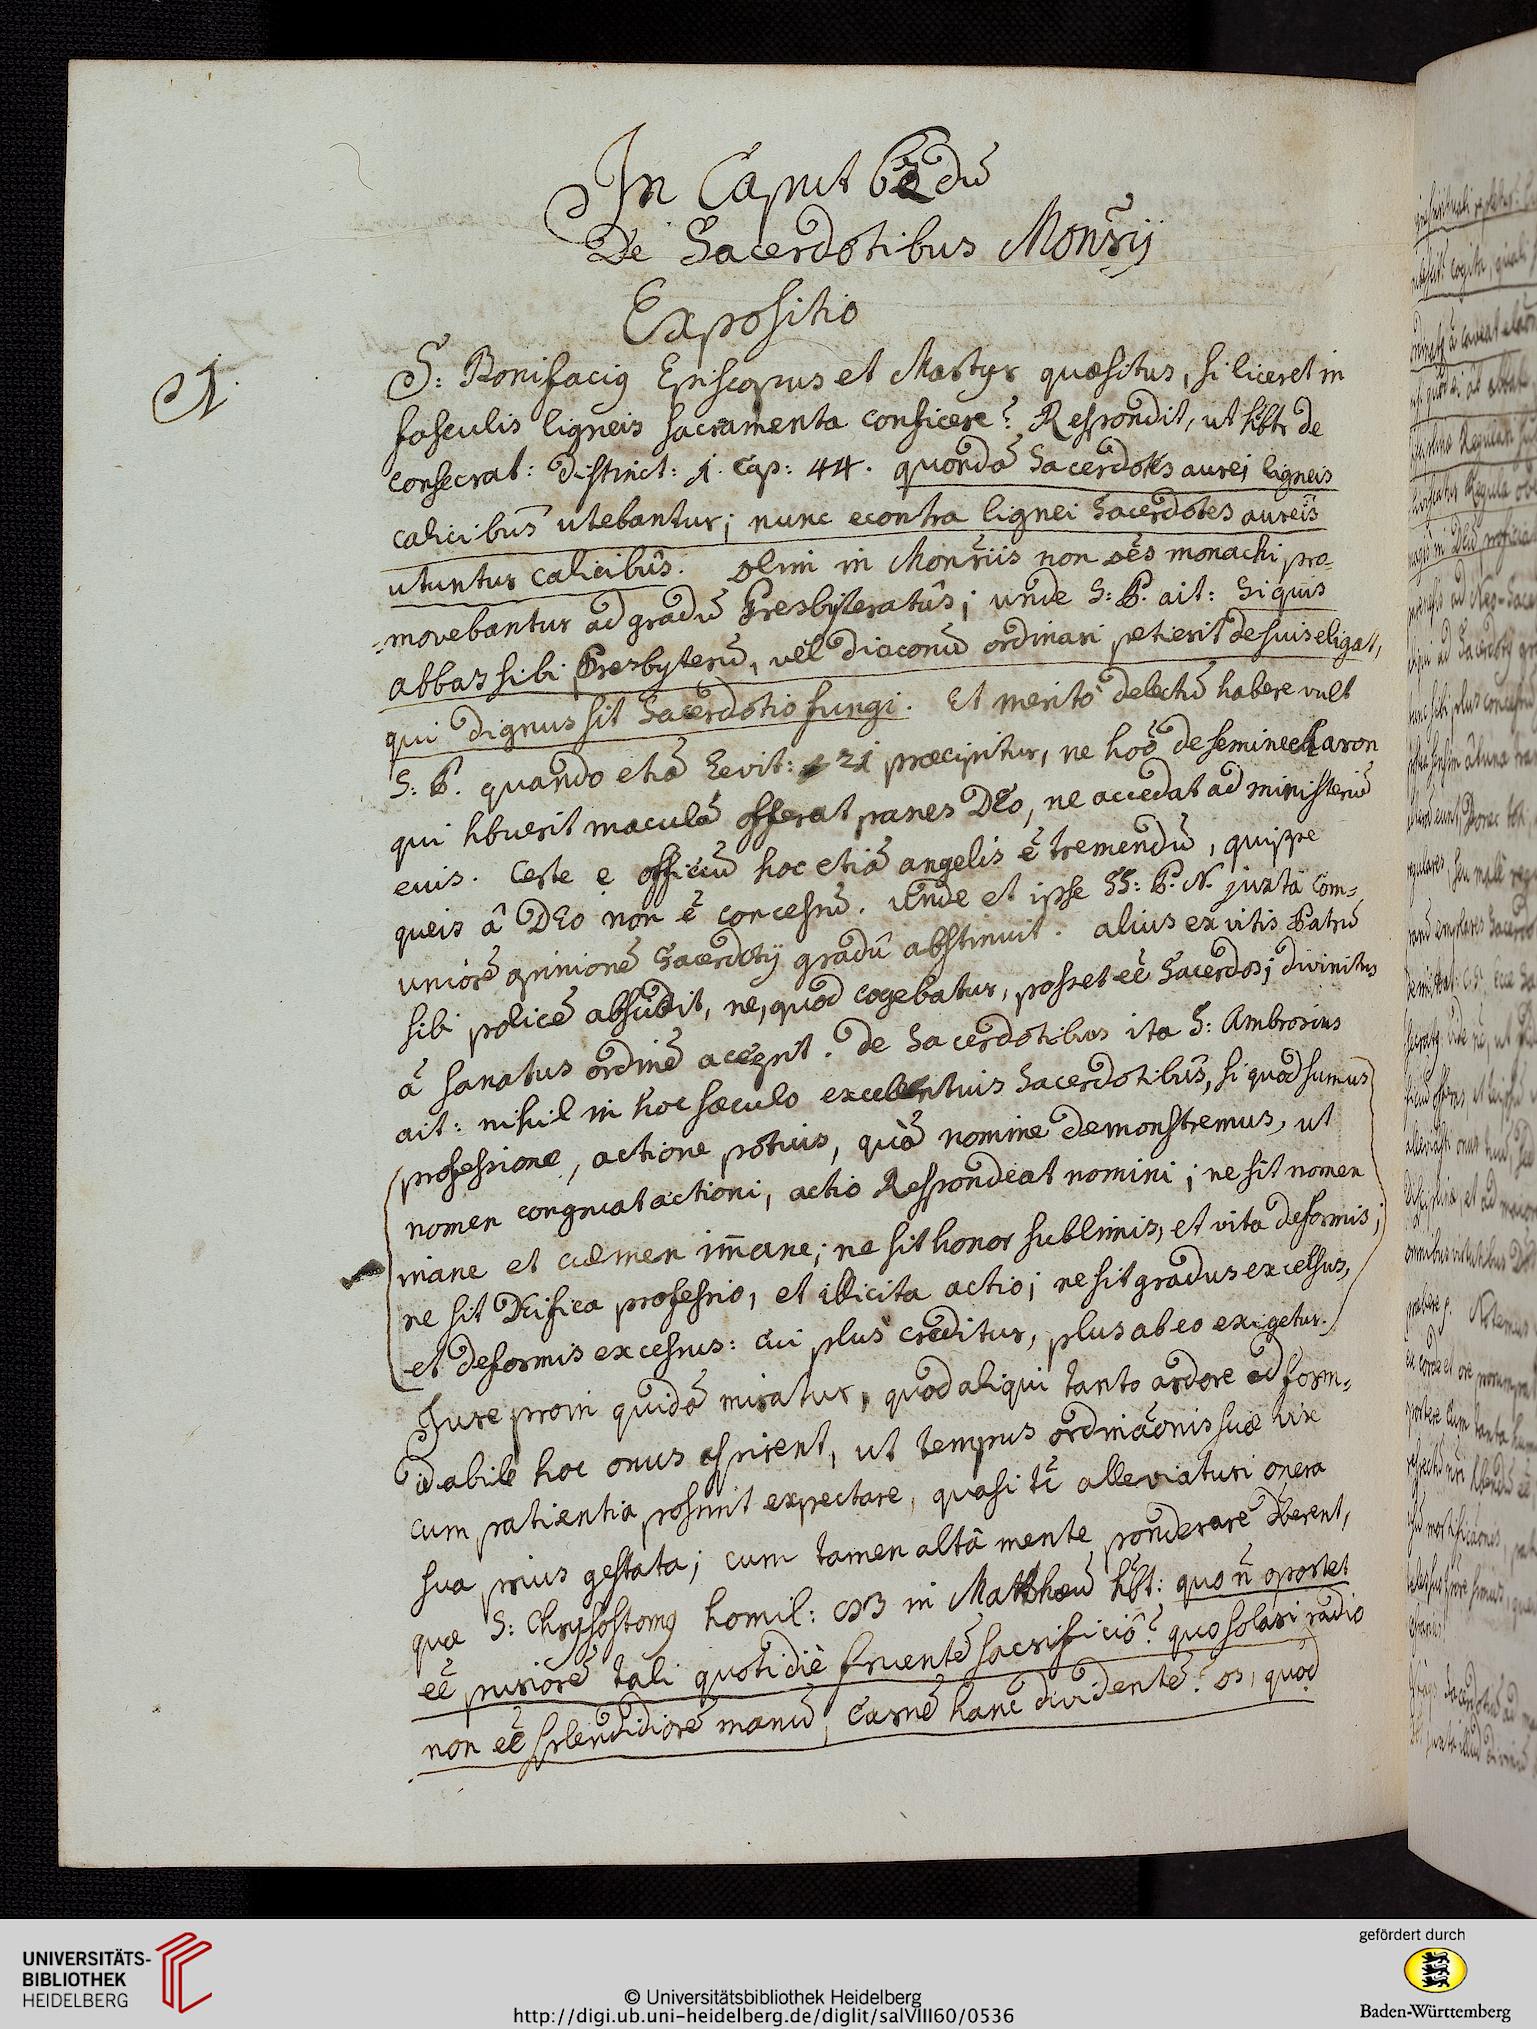 In Caput 62dū
De Sacerdotibus Monrỹ
Expositio
1.
S: Bonifaciꝰ Episcopus et Martyr quæsitus, si liceret in
fasculis ligneis sacramenta conficere? Respondit, ut hb̄tr de
consecrat: distinct: 1. Cap: 44. quondā Sacerdotes aurei ligneis
calicibus utebantur; nunc econtra lignei Sacerdotes aureis
utuntur calicibûs. Olim in Monr̃iis non oēs monachi pro-
-movebantur ad gradū Presbyteratûs; unde S: P. ait: Siquis
abbas sibi Presbyterū, vel diaconū ordinari petierit de suis eligat,
qui dignus sit Sacerdotio fungi. Et meritò delectū habere vult
S: P. quando etiā Levit: 21 præcipitur, ne hoō de semine Aaron
qui hbuerit maculā offerat panes DEo, ne accedat ad ministeriū
eius. Certe e officiū hoc etiā angelis ē tremendū, quippe
queis â DEo non ē concessū. Unde et ipse SS: P. N. juxta com-
uniorē opinionē Sacerdotij gradū abstinuit. alius ex vitis Patrū
sibi policē abscidit, ne, quod cogebatur, posset eē Sacerdos; divinitus
ā sanatus ordinē acepit. De Sacerdotibus ita S: Ambrosius
ait: nihil in hoc sæculo excellentius Sacerdotibûs, si quod sumus
professione, actione potius, quà nomine demonstremus, ut
nomen congruat actioni, actio Respondeat nomini; ne sit nomen
inane et crimen im̄ane; ne sit honor sublimis, et vita deformis;
ne sit Deifica professio, et illicita actio; ne sit gradus excelsus,
et deformis excessus: cui plus creditur, plus ab eo exigetur.
Jure proin quidā miratur, quod aliqui tanto ardore ad form-
idabile hoc onus aspirent, ut tempus ordinaōnis suæ vix
cum patientia possint expectare, quasi tc̄ alleviaturi onera
sua prius gestata; cum tamen altâ mente ponderare dberent,
quæ S: Chrysostomꝰ homil: 83 in Matthæū hb̄t: quo n̄ oportet
eē puriorē tali quotidiè fruentē sacrificiô? quo solari radio
non eē splendidiorē manū, Carnē hanc dividentē? os, quod
UNIVERSITÄTS-
BIBLIOTHEK
HEIDELBERG
© Universitätsbibliothek Heidelberg
http://digi.ub.uni-heidelberg.de/diglit/salVIII60/0536
gefördert durch
Baden-Württemberg